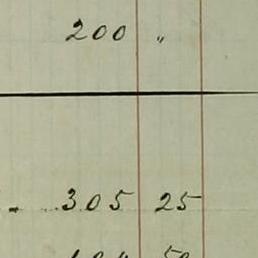 200 "
305 25